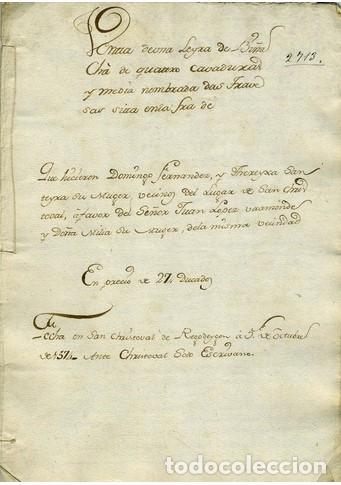 Venta de una Leyra de Viña
Chá de quattro cavaduras
2713.
y media nombrada das Trave
sas sita en la fra de
Que hicieron Domingo Fernandez, y Thereyxa San
teyxa su Muger, vecinos del lugar de San Chris
toval, a favor del Señor Juan Lopez vaamonde
y Doña Milia su Muger, de la misma vecindad
En precio de 27 ducados
Fecha en San Christoval de Regodeygon á 5 de Octubre
de 1574 Ante Christoval Soto Escrivano.
todocoleccion.net